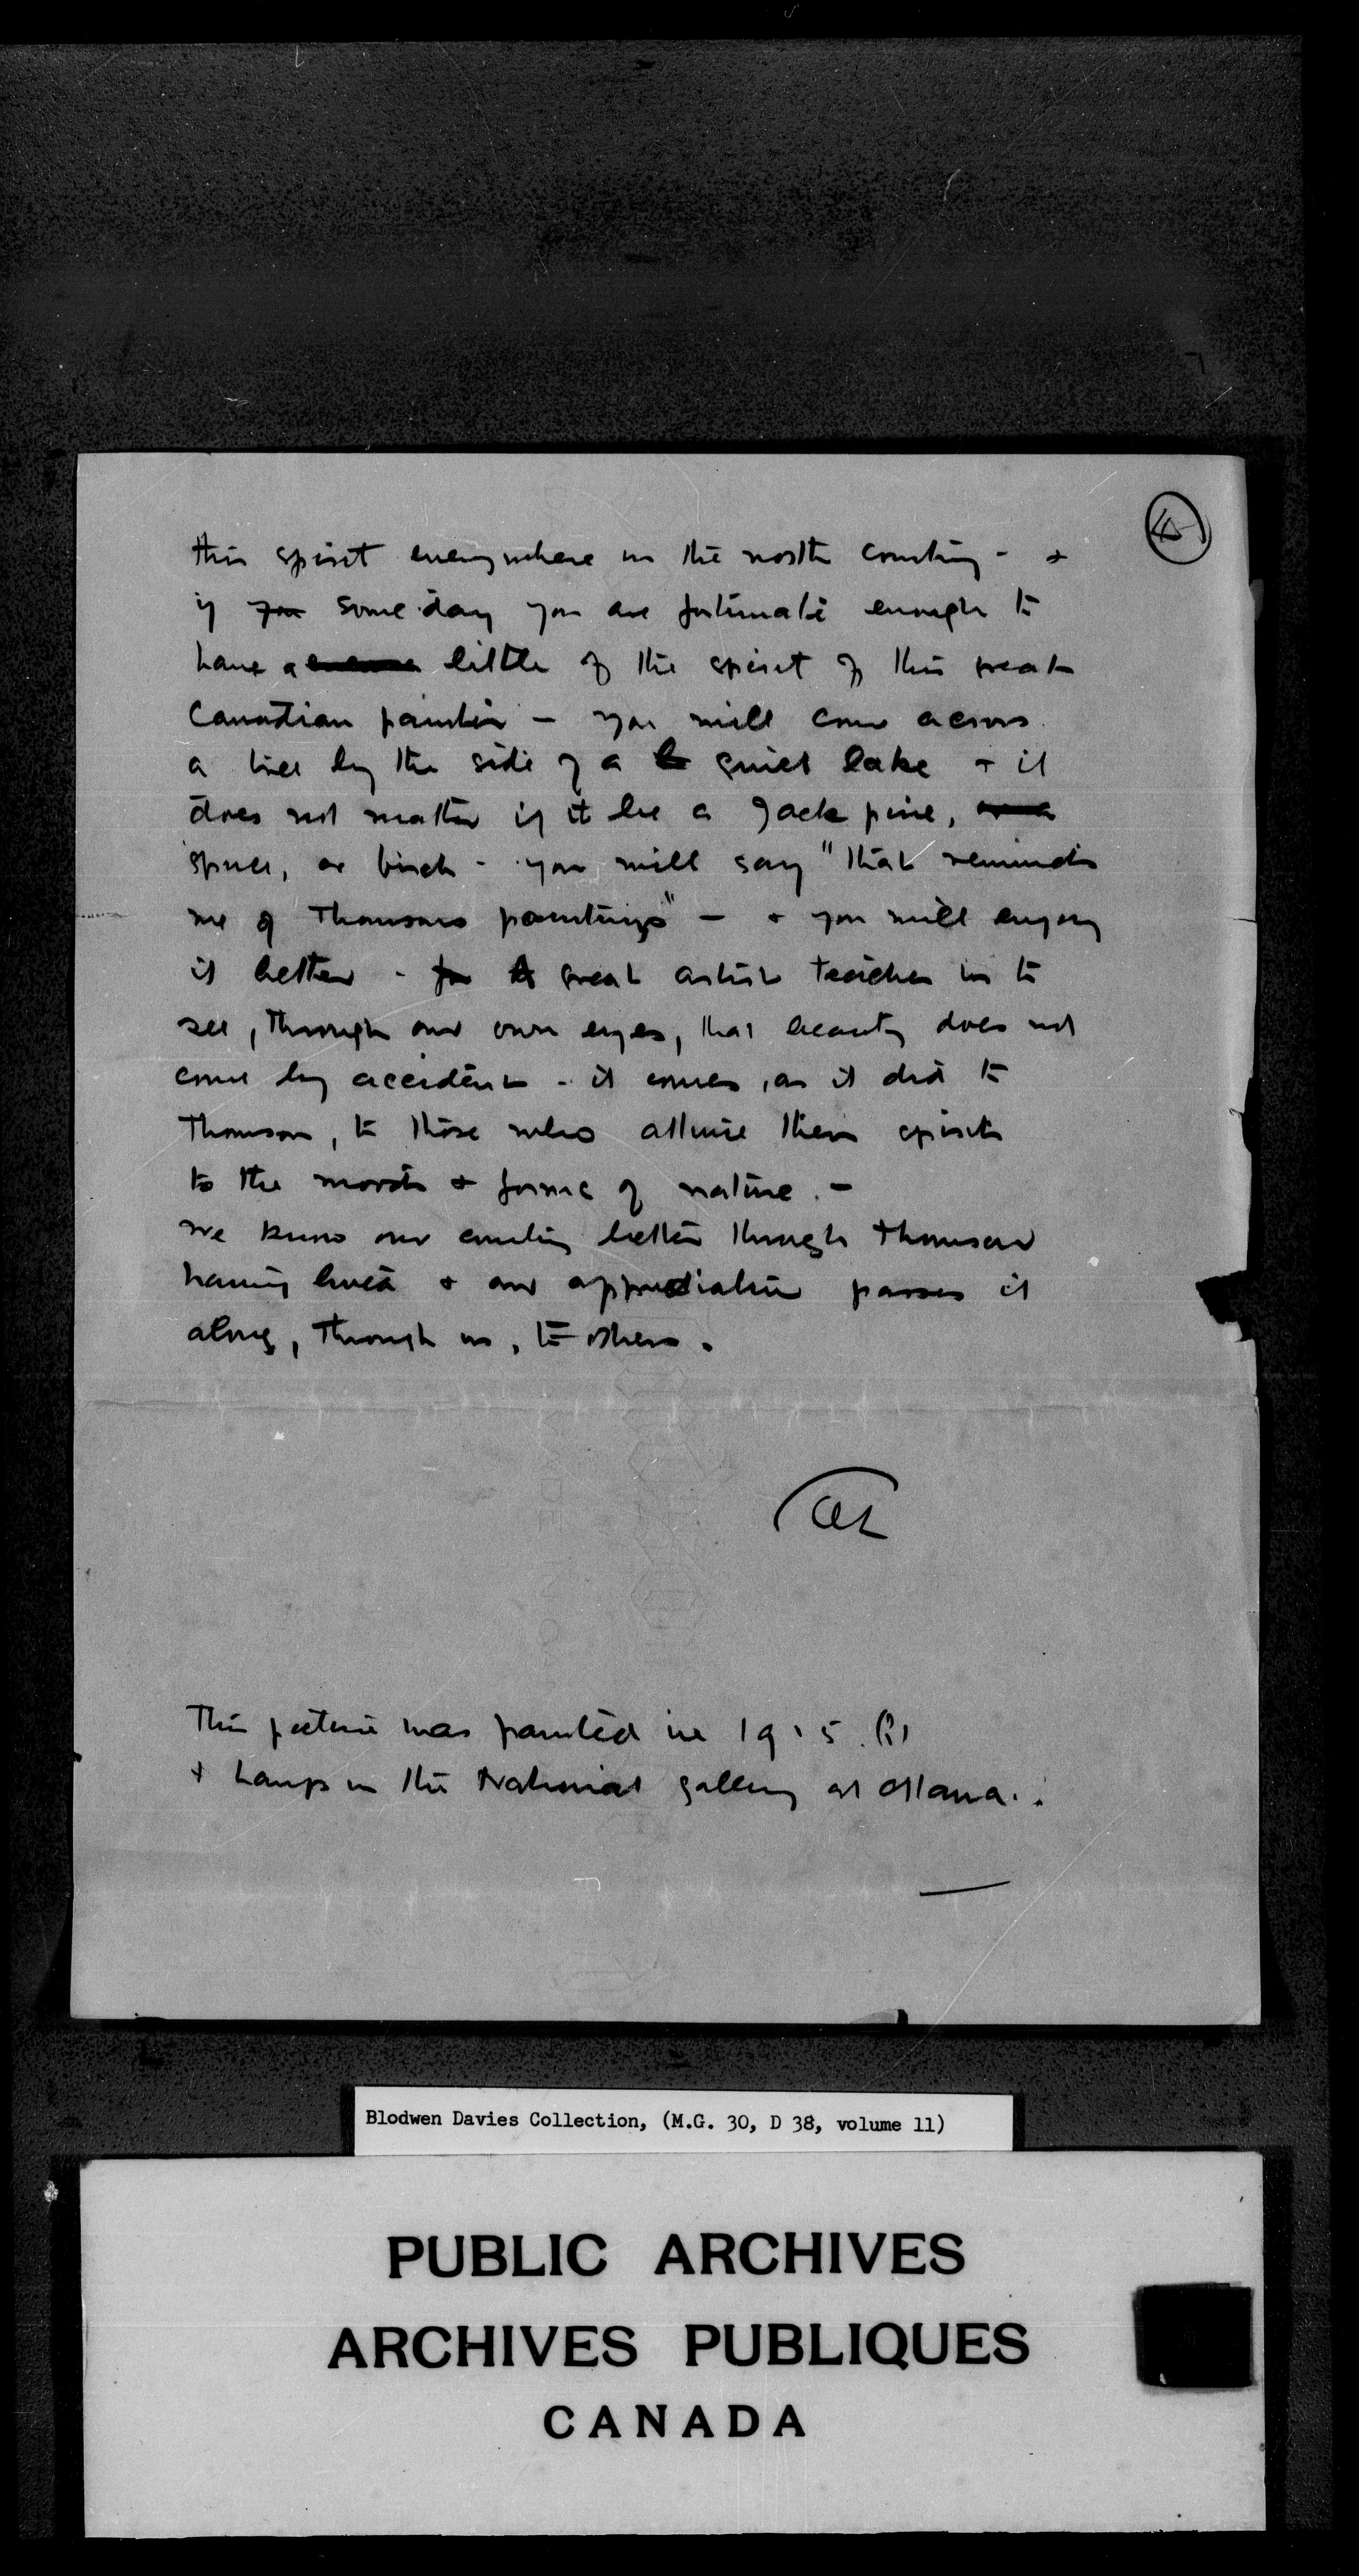 this spirit everywhere in the north country - +
if you some day you are fortunate enough to
have a little of the spirit of this great
Canadian painter - you will come across
a tree by the side of a quiet lake + it
does not matter if it be a Jack pine,
spruce, or birch - you will say "that reminds
me of Thomsons paintings" - + you will enjoy
it better - for A great artist teaches us to
see, through our own eyes, that beauty does not
come by accident - it comes, as it did to
Thomson, to those who attune their spirits
to the moods + forms of nature. -
we know our country better through Thomson
having lived + our appreciation passes it
along, through us, to others.
This picture was painted in 1915. (?)
+ hangs in the National gallery at Ottawa.
Blodwen Davies Collection, (M.G. 30, D 38, volume 11)
PUBLIC ARCHIVES
ARCHIVES PUBLIQUES
CANADA